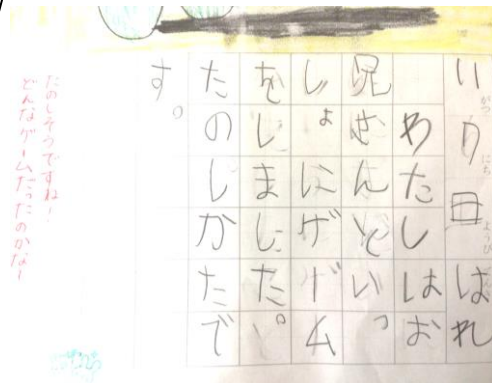 がつ にち 日 ようび はれ
わたしはお
兄せんといっ
しょにゲーム
をしました。
たのしかたで
す。
たのしそうですね!
どんなゲームだったのかな〜